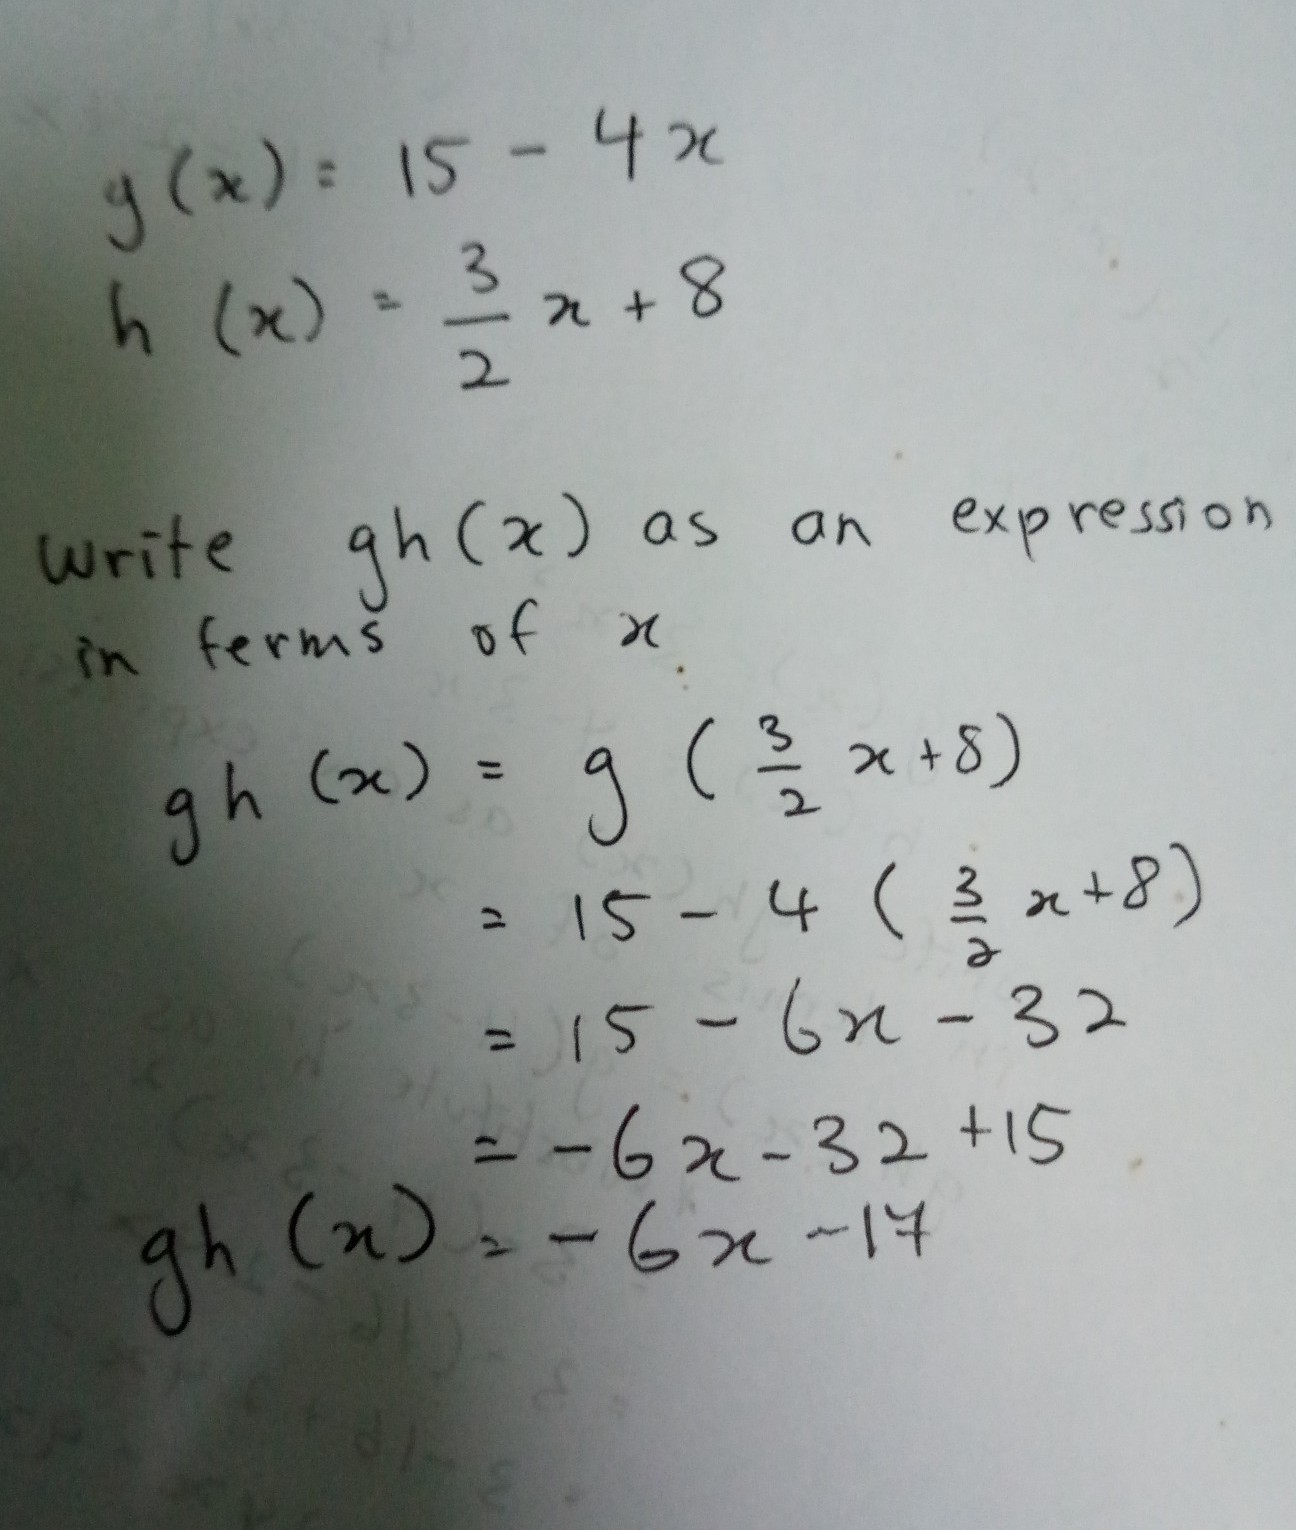 g(x) = 15 - 4x
h (x) = 3/2 x + 8
write gh(x) as an expression
in terms of x.
gh (x) = g ( 3/2 x+8)
= 15 - 4 ( 3/2 x+8)
= 15 - 6x - 32
= -6x - 32 +15
gh (x) = -6x -17